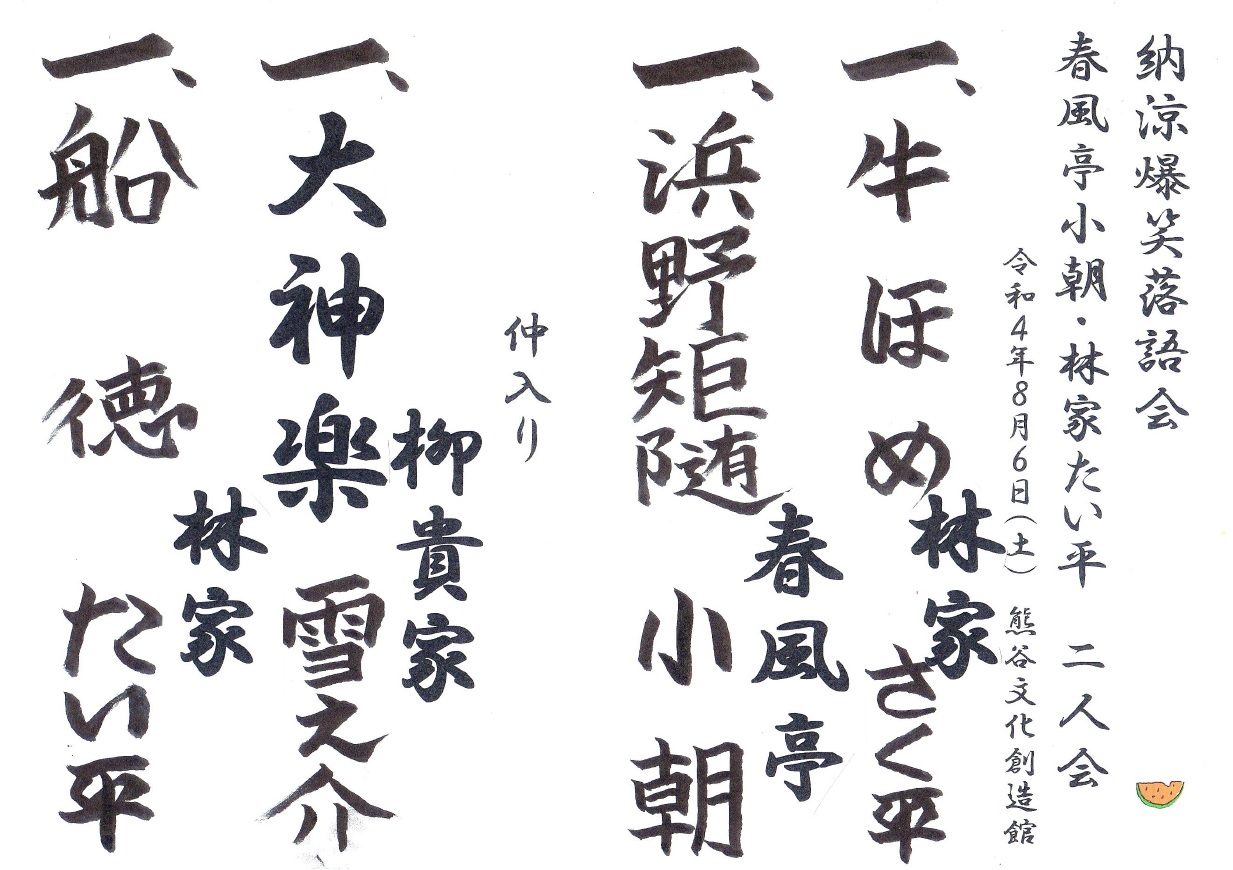 納涼爆笑落語会
春風亭小朝・林家たい平 二人会
令和4年8月6日(土) 熊谷文化創造館
一、牛ほめ 林家さく平
一、浜野矩随 春風亭小朝
仲入り
一、大神楽 柳貴家雪之介
一、船徳 林家たい平